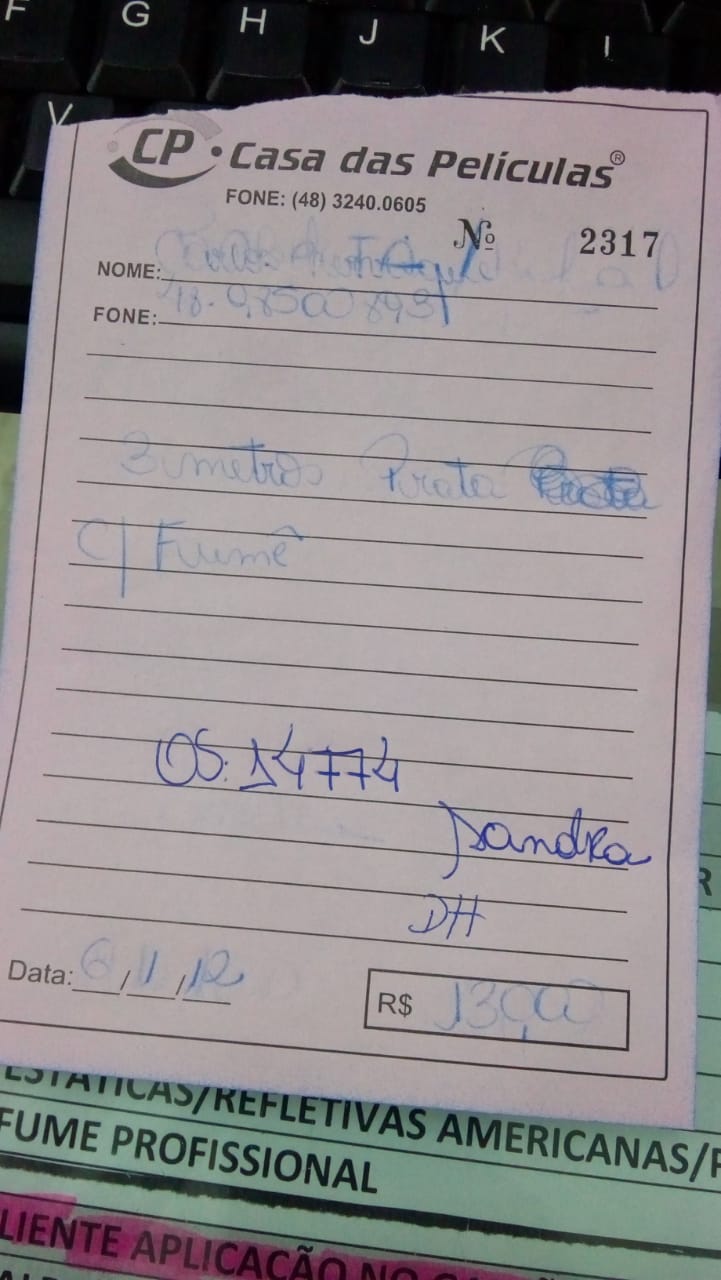 F G H J K
V
CP Casa das Películas®
FONE: (48) 3240.0605
Nº 2317
NOME:
FONE: 48.
3 metros Prata
C/ Fumê
OS. 14774
Sandra
DH
Data: 6/1/12 R$ 130,00
ESTÁTICAS/REFLETIVAS AMERICANAS/
FUME PROFISSIONAL
LIENTE APLICAÇÃO NO